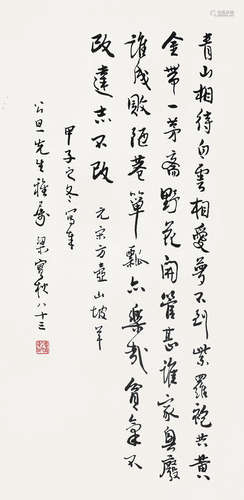 青山相待白雲相愛夢不到紫羅袍共黃
金帶一茅齋野花開管甚誰家興廢
誰成敗陋巷簞瓢亦樂哉貧氣不
改達志不改 元宋方壺山坡羊
甲子之冬寫奉
公旦先生雅屬 梁實秋八十三